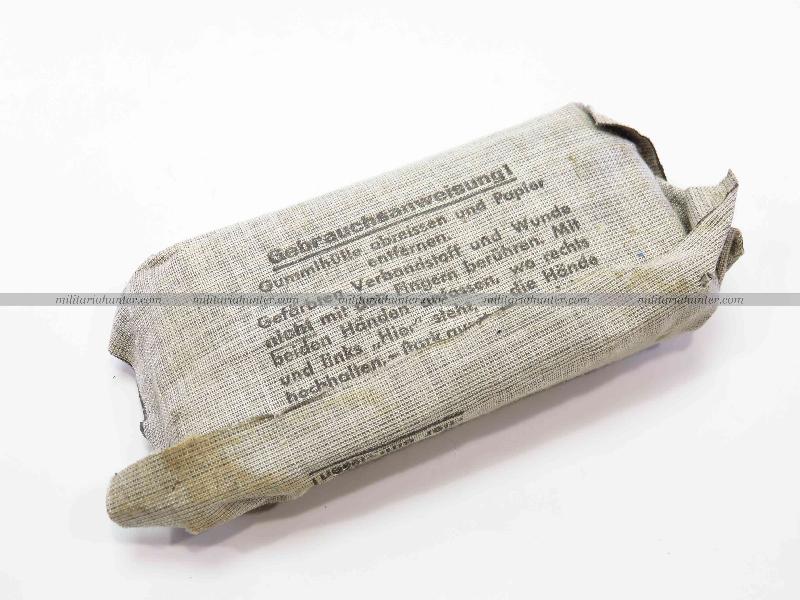 Gebrauchsanweisung!
Gummihülle abreissen und Papier
entfernen.
Gefärbten Verbandstoff und Wunde
nicht mit den Fingern berühren. Mit
beiden Händen fassen, wo rechts
und links „Hier" steht, die Hände
hochhalten.–
militariahunter.com militariahunter.com militariahunter.com militariahunter.com militariahunter.com